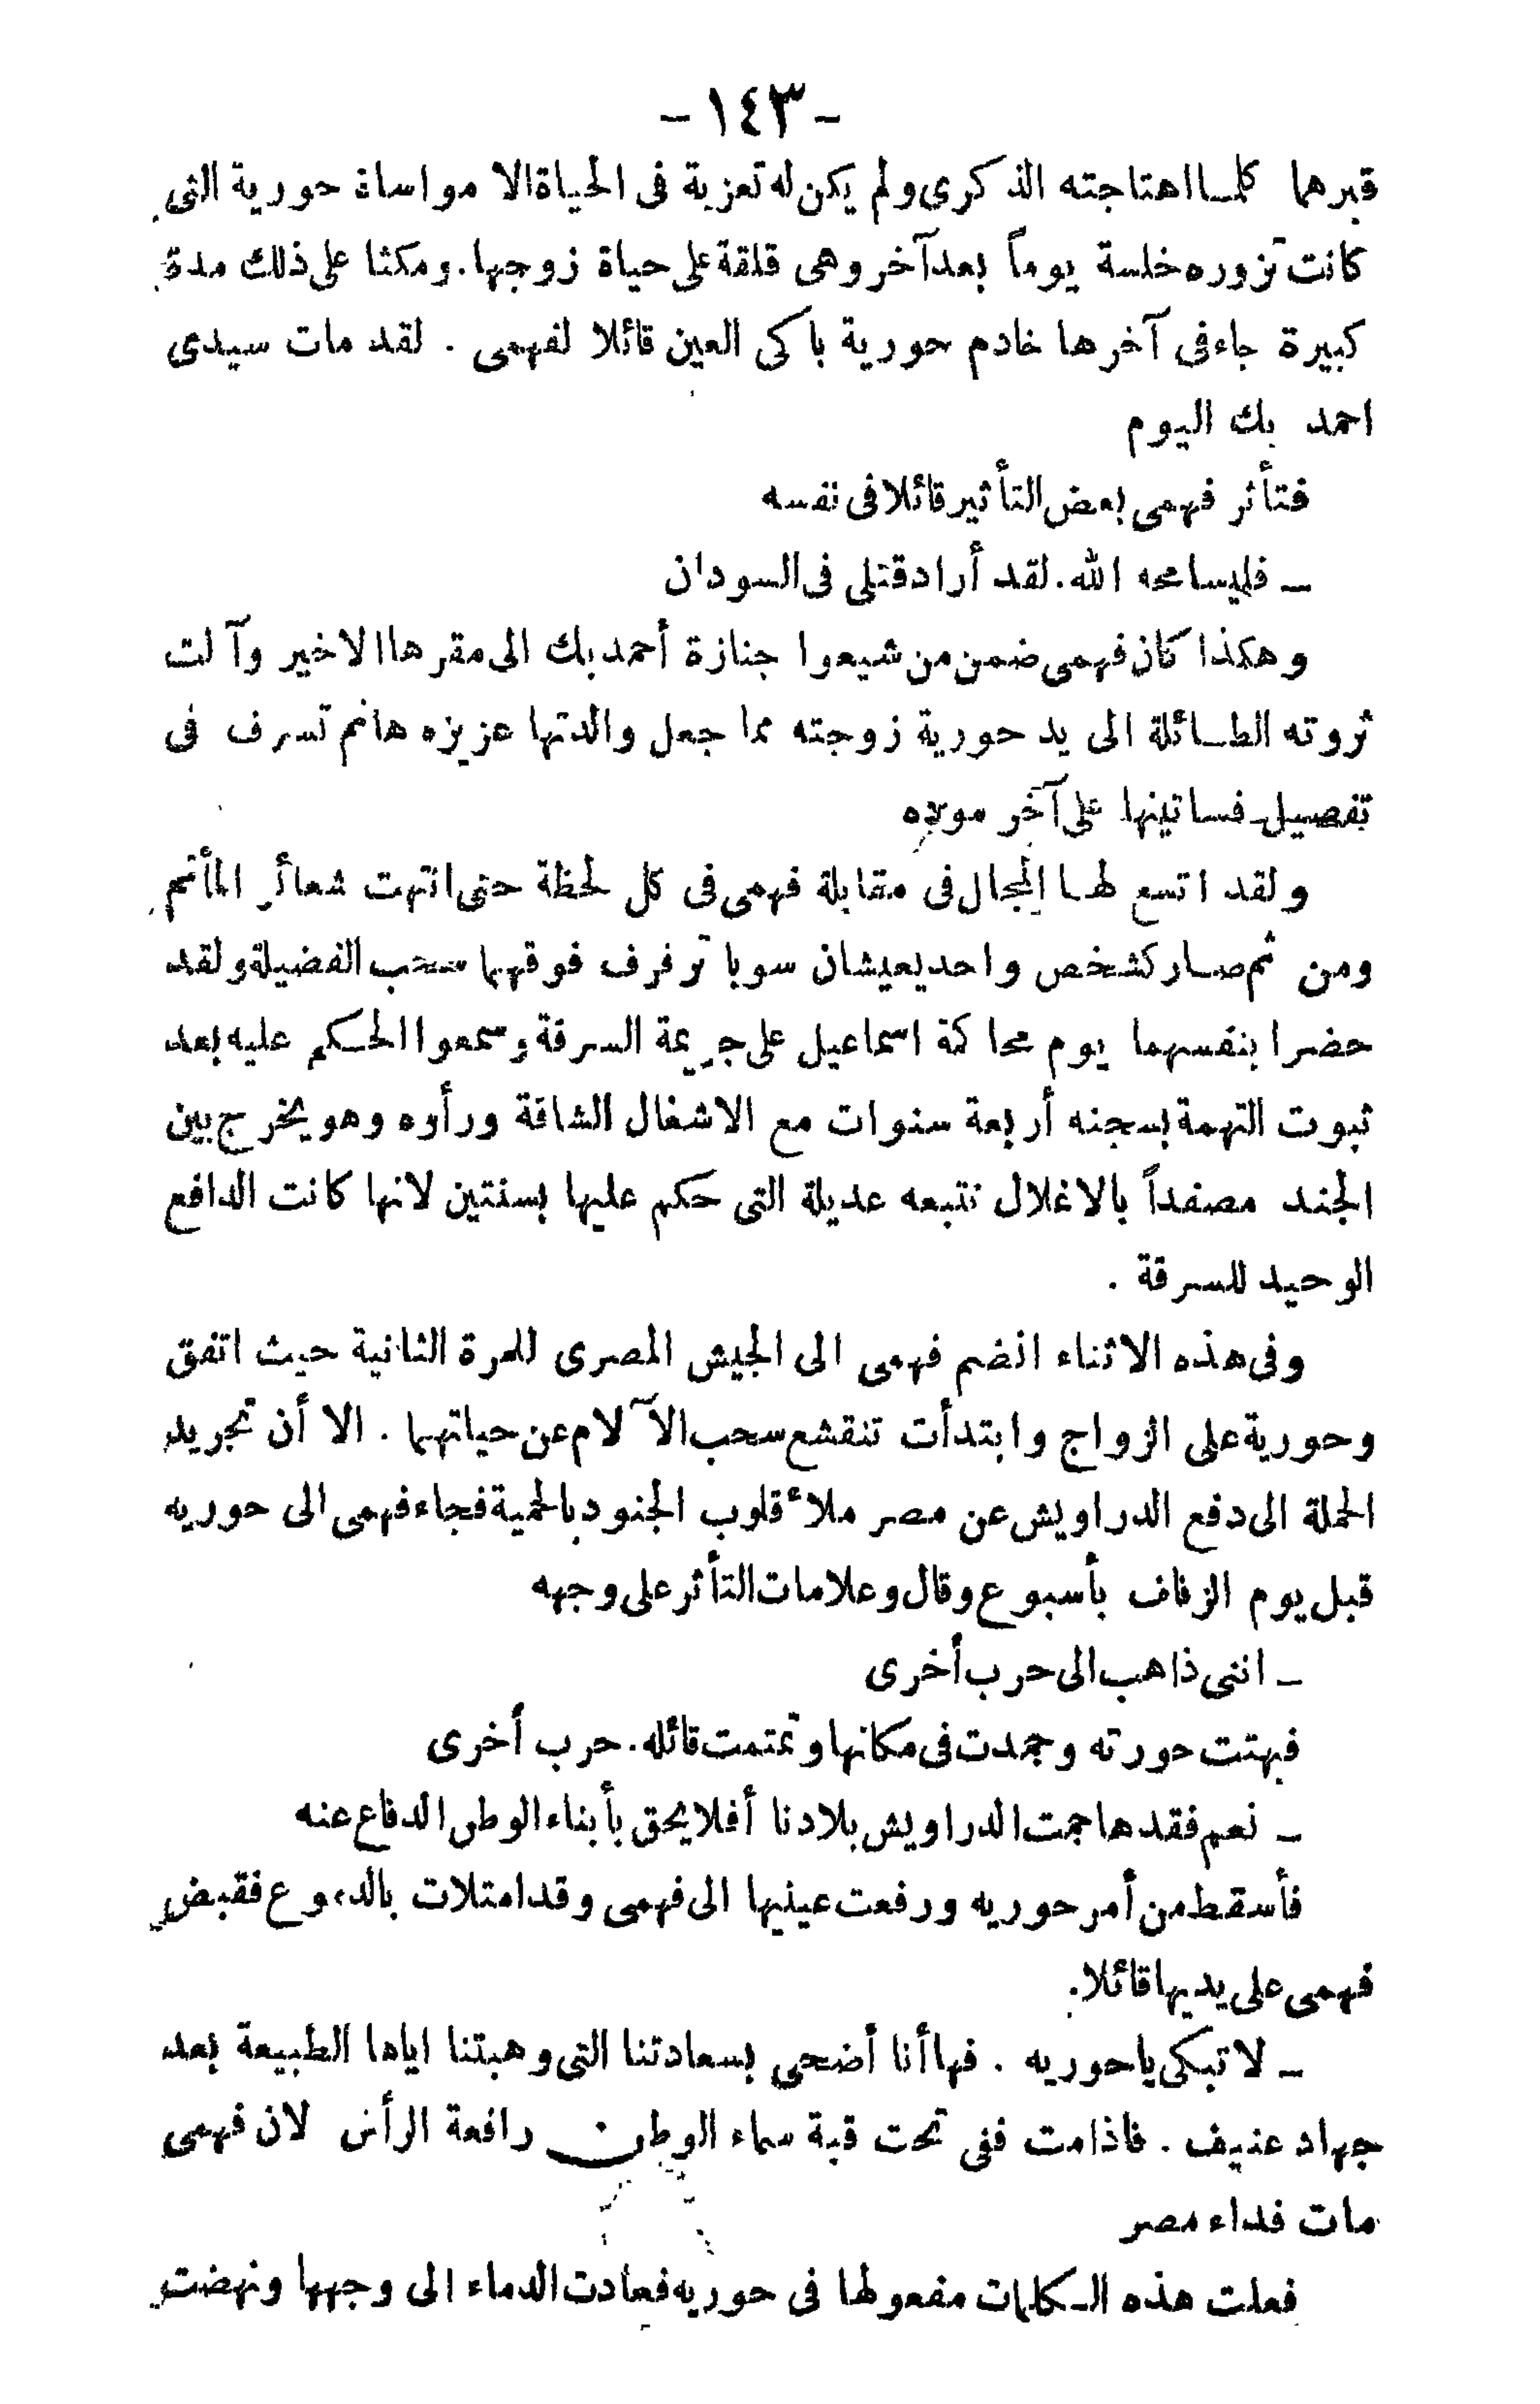 - ١٤٣ -
قبرهما كلما اهتاجته الذكرى ولم يكن له تعزية فى الحياة الا مواساة حورية التى
كانت تزوره خلسة يوماً بعد آخر وهى قلقة على حياة زوجها. ومكثا على ذلك مدة
كبيرة جاء فى آخرها خادم حورية باكى العين قائلا لفهمى . لقد مات سيدى
احمد بك اليوم
فتأثر فهمى بعض التأثير قائلا فى نفسه
ـ فليسامحه الله. لقد أراد قتلى فى السودان
وهكذا كان فهمى ضمن من شيعوا جنازة أحمد بك الى مقرها الاخير وآلت
ثروته الطائلة الى يد حورية زوجته مما جعل والدتها عزيزه هانم تسرف فى
تفصيل فساتينها على آخر موده
ولقد اتسع لهما المجال فى مقابلة فهمى فى كل لحظة حتى انتهت شعائر المأتم
ومن ثم صار كشخص واحد يعيشان سويا ترفرف فوقهما سحب الفضيلة ولقد
حضرا بنفسهما يوم محاكمة اسماعيل على جريمة السرقة وسمعوا الحكم عليه بعد
ثبوت التهمة بسجنه أربعة سنوات مع الاشغال الشاقة ورأوه وهو يخرج بين
الجند مصفداً بالاغلال تتبعه عديلة التى حكم عليها بسنتين لانها كانت الدافع
الوحيد للسرقة .
وفى هذه الاثناء انضم فهمى الى الجيش المصرى للمرة الثانية حيث اتفق
وحورية على الزواج وابتدأت تنقشع سحب الآلام عن حياتهما . الا أن تجريد
الحملة الى دفع الدراويش عن مصر ملاء قلوب الجنود بالحمية فجاء فهمى الى حوريه
قبل يوم الزفاف بأسبوع وقال وعلامات التأثر على وجهه
ـ اننى ذاهب الى حرب أخرى
فبهتت حورته وجمدت فى مكانها وتمتمت قائله. حرب أخرى
ـ نعم فقد هاجمت الدراويش بلادنا أفلا يحق بأبناء الوطن الدفاع عنه
فأسقط من أمر حوريه ورفعت عينيها الى فهمى وقد امتلات بالدموع فقبض
فهمى على يديها قائلا.
ـ لا تبكى يا حوريه . فها أنا أضحى بسعادتنا التى وهبتنا اياها الطبيعة بعد
جهاد عنيف . فاذا مت ففى تحت قبة سماء الوطن رافعة الرأس لان فهمى
مات فداء مصر
فعلت هذه الكلمات مفعولها فى حوريه فعادت الدماء الى وجهها ونهضت